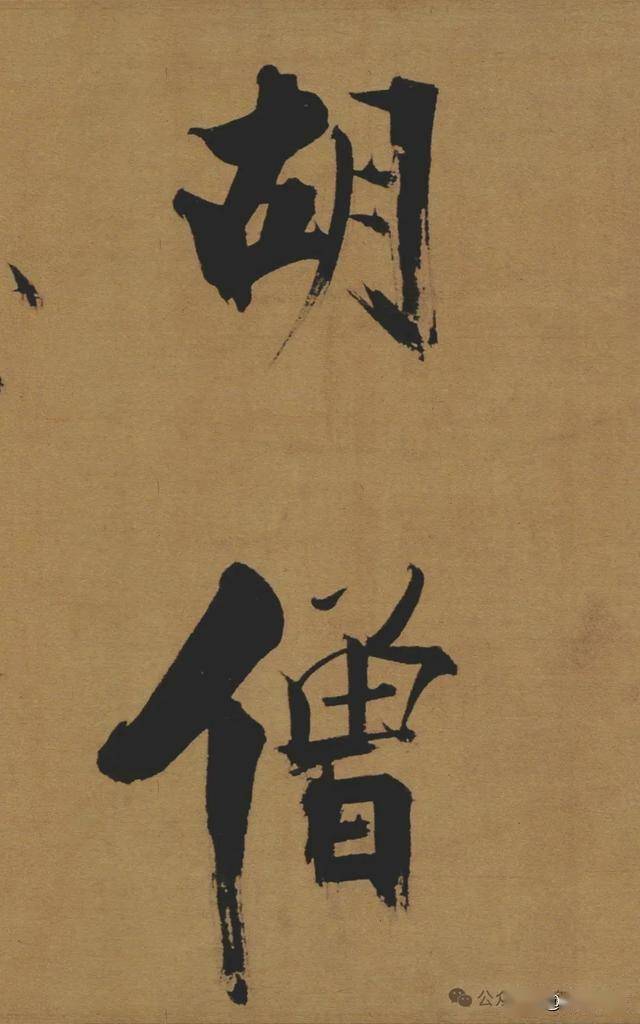 胡僧
公众